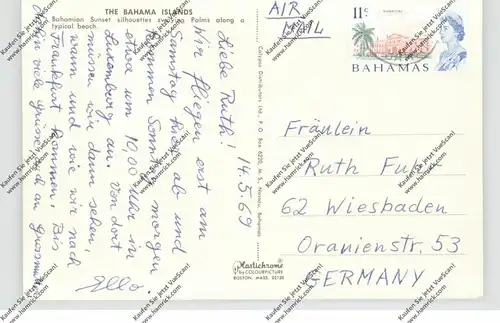 THE BAHAMA ISLANDS
Bahamian Sunset silhouettes Palms along a
typical beach.
Liebe Ruth! 14.5.69
Wir fliegen erst am
Samstag hier ab und
kommen Sonntag morgen
etwa um 10,00 Uhr in
Luxemburg an. Von dort
müssen wir dann sehen,
wann und wie wir nach
Frankfurt kommen. Bis
dahin viele Grüsse auch an
Ello.
Calypso Distributors Ltd., P. O. Box 6220, M. S., Nassau, Bahamas
Plastichrome
by COLOURPICTURE
BOSTON, MASS. 02130
AIR
MAIL
11c
BAHAMAS
Fräulein
Ruth
62 Wiesbaden
Oranienstr. 53
GERMANY
Kaufen Sie jetzt VueScan!
www.hamrick.com